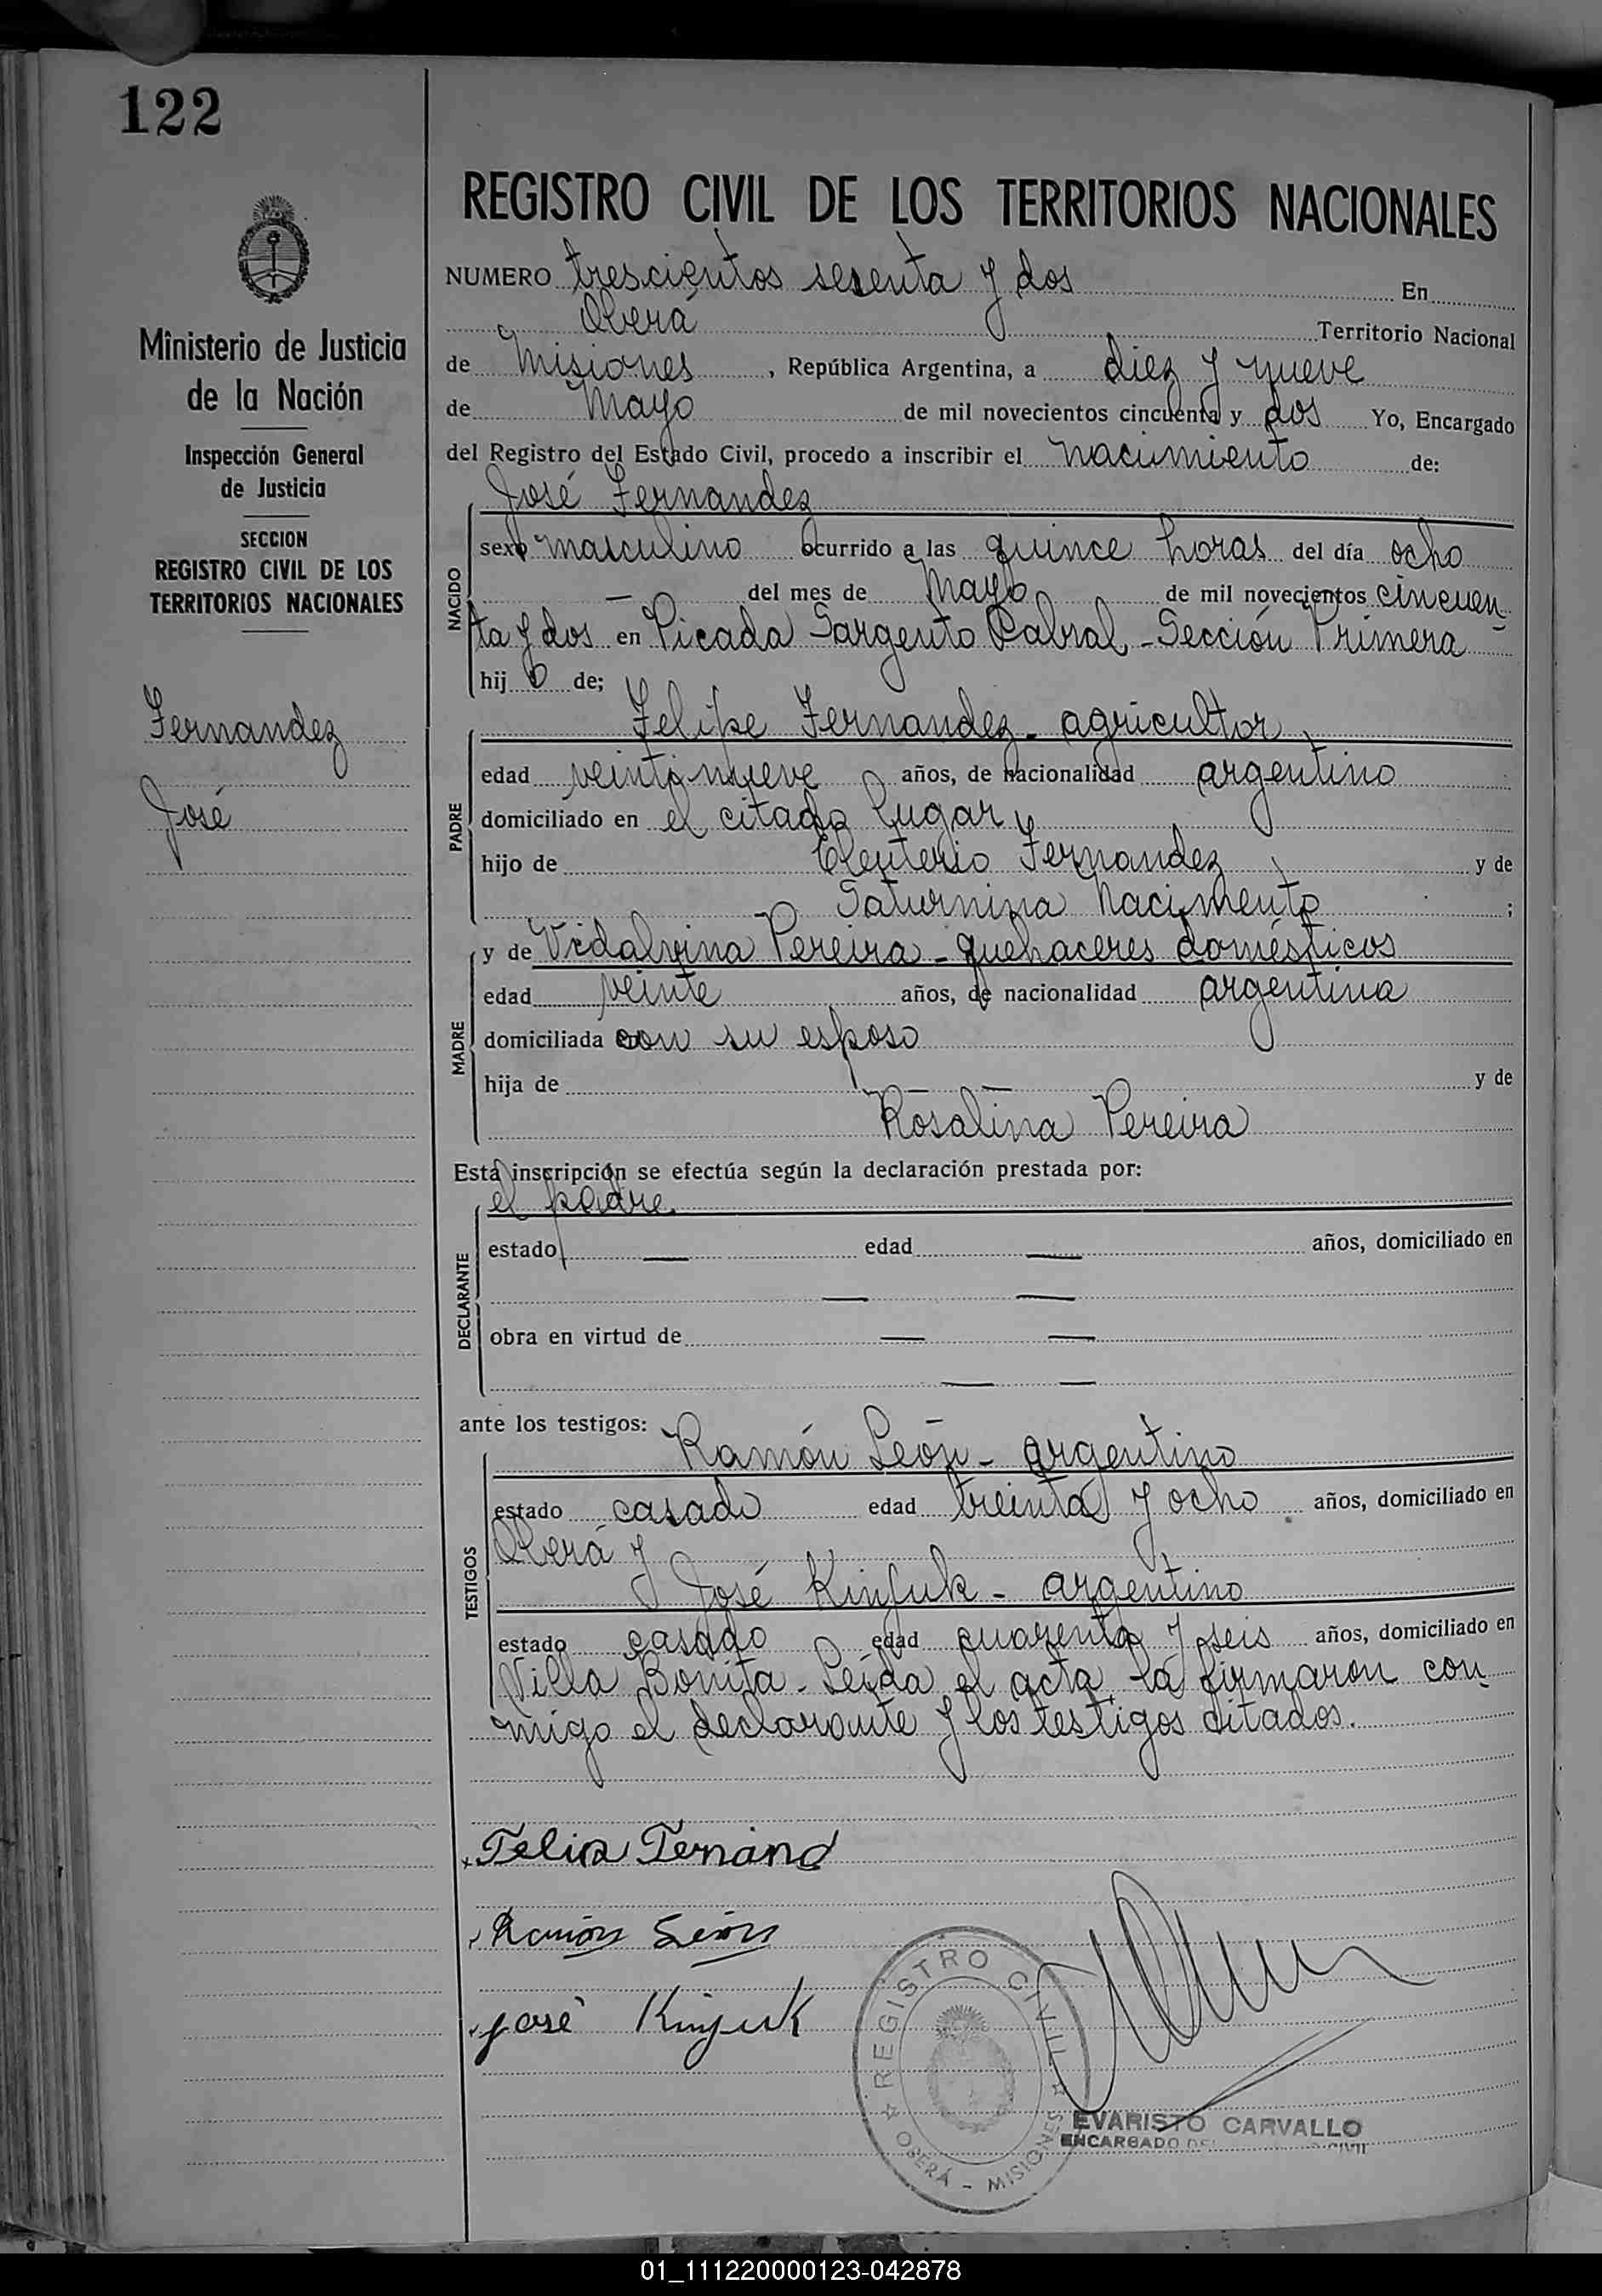 122
REGISTRO CIVIL DE LOS TERRITORIOS NACIONALES
Ministerio de Justicia
de la Nación
Inspección General
de Justicia
SECCION
REGISTRO CIVIL DE LOS
TERRITORIOS NACIONALES
Fernandez
José
NUMERO trescientos sesenta y dos En
Oberá Territorio Nacional
de Misiones, República Argentina, a diez y nueve
de Mayo de mil novecientos cincuenta y dos Yo, Encargado
del Registro del Estado Civil, procedo a inscribir el nacimiento de:
NACIDO
José Fernandez
sexo masculino ocurrido a las quince horas del día ocho
— del mes de Mayo de mil novecientos cincuen
ta y dos en Picada Sargento Cabral,-Sección Primera
hijo de;
PADRE
Felipe Fernandez - agricultor
edad veintinueve años, de nacionalidad argentino
domiciliado en el citado lugar y
hijo de Eleuterio Fernandez y de
Saturnina Nacimento ;
MADRE
y de Vidalvina Pereira - quehaceres domésticos
edad veinte años, de nacionalidad argentina
domiciliada con su esposo
hija de — — y de
Rosalina Pereira
Esta inscripción se efectúa según la declaración prestada por:
DECLARANTE
el padre.
estado — edad — años, domiciliado en
— —
obra en virtud de — —
— —
ante los testigos:
TESTIGOS
Ramón León - argentino
estado casado edad treinta y ocho años, domiciliado en
Oberá y
José Kinjuk - argentino
estado casado edad cuarenta y seis años, domiciliado en
Villa Bonita - Leída el acta la firmaron con
migo el declarante y los testigos citados.
Ramón León
José Kinjuk
REGISTRO CIVIL
OBERÁ - MISIONES
EVARISTO CARVALLO
ENCARGADO DEL CIVIL
01_111220000123-042878